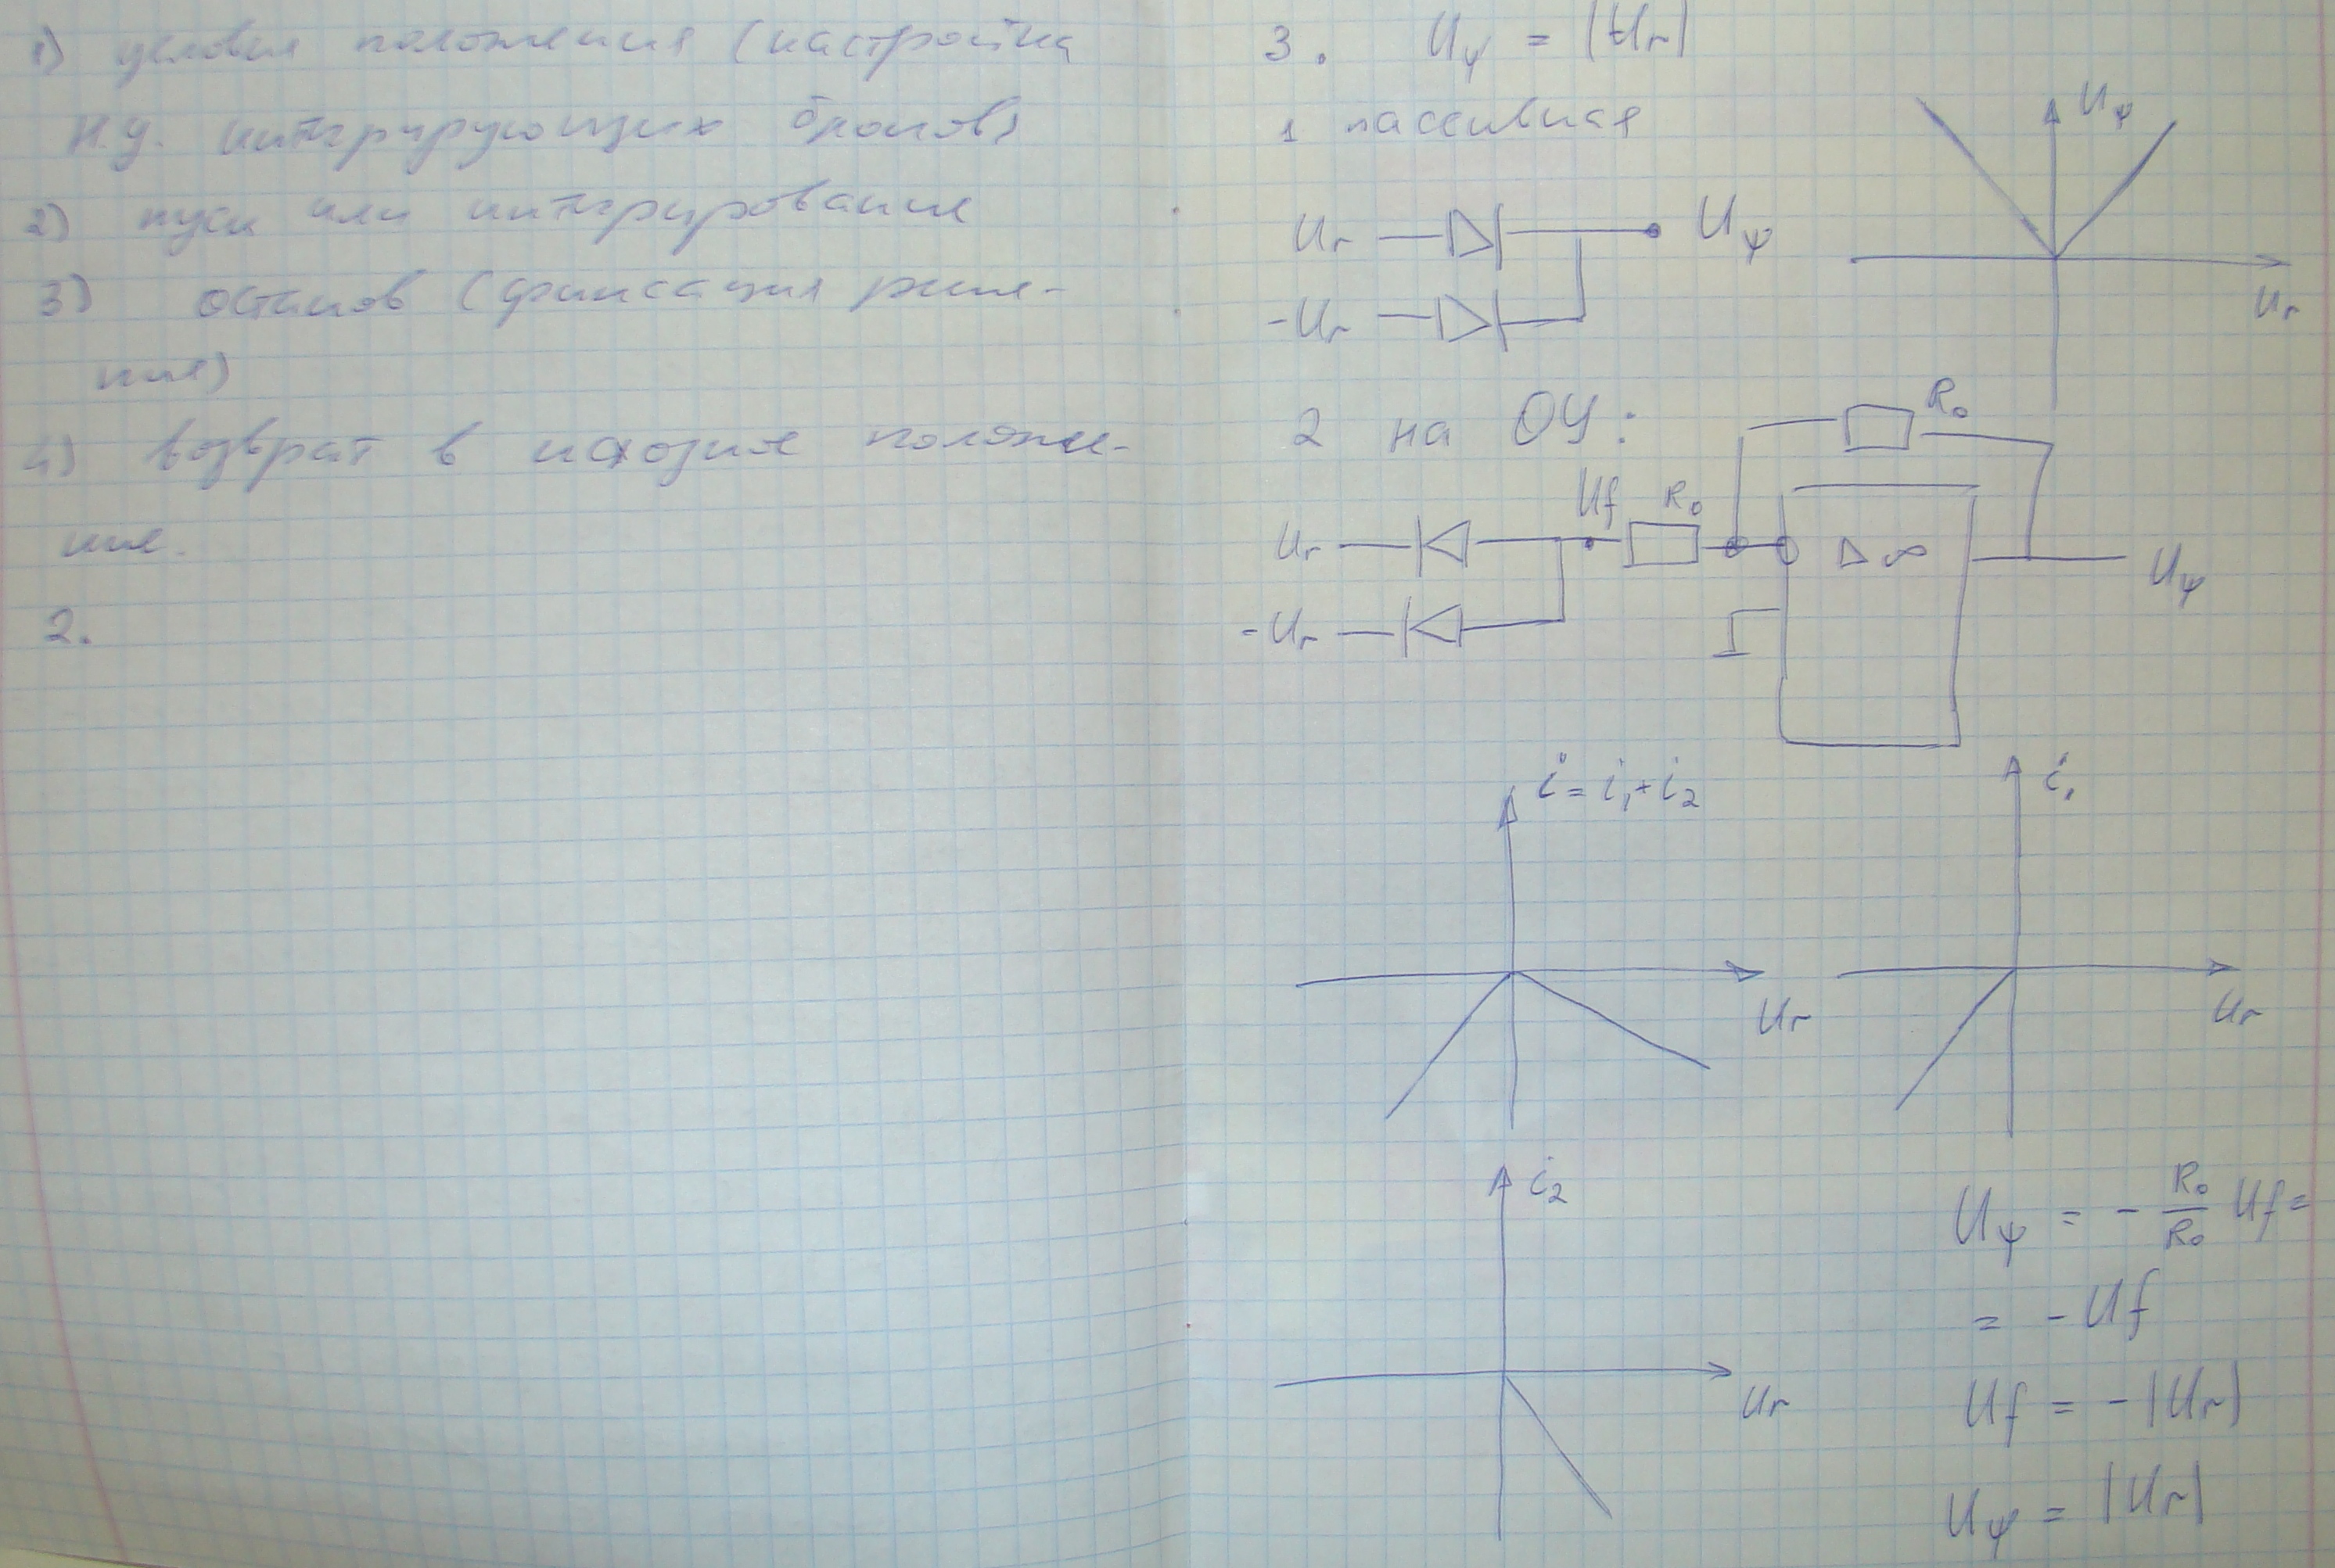 1) условия положения (настройка
Н.У. интегрирующих блоков)
2) пуск или интегрирование
3) останов (фиксация реше-
ния)
4) возврат в исходное положе-
ние.
2.
3. Uψ = |Ur|
1 пассивная
Uψ
Ur
Ur
Uψ
-Ur
2 на ОУ:
R₀
Uf
R₀
Ur
▷∞
Uψ
-Ur
i = i₁ + i₂
Ur
i₁
Ur
i₂
Ur
Uψ = - R₀/R₀ Uf =
= - Uf
Uf = - |Ur|
Uψ = |Ur|